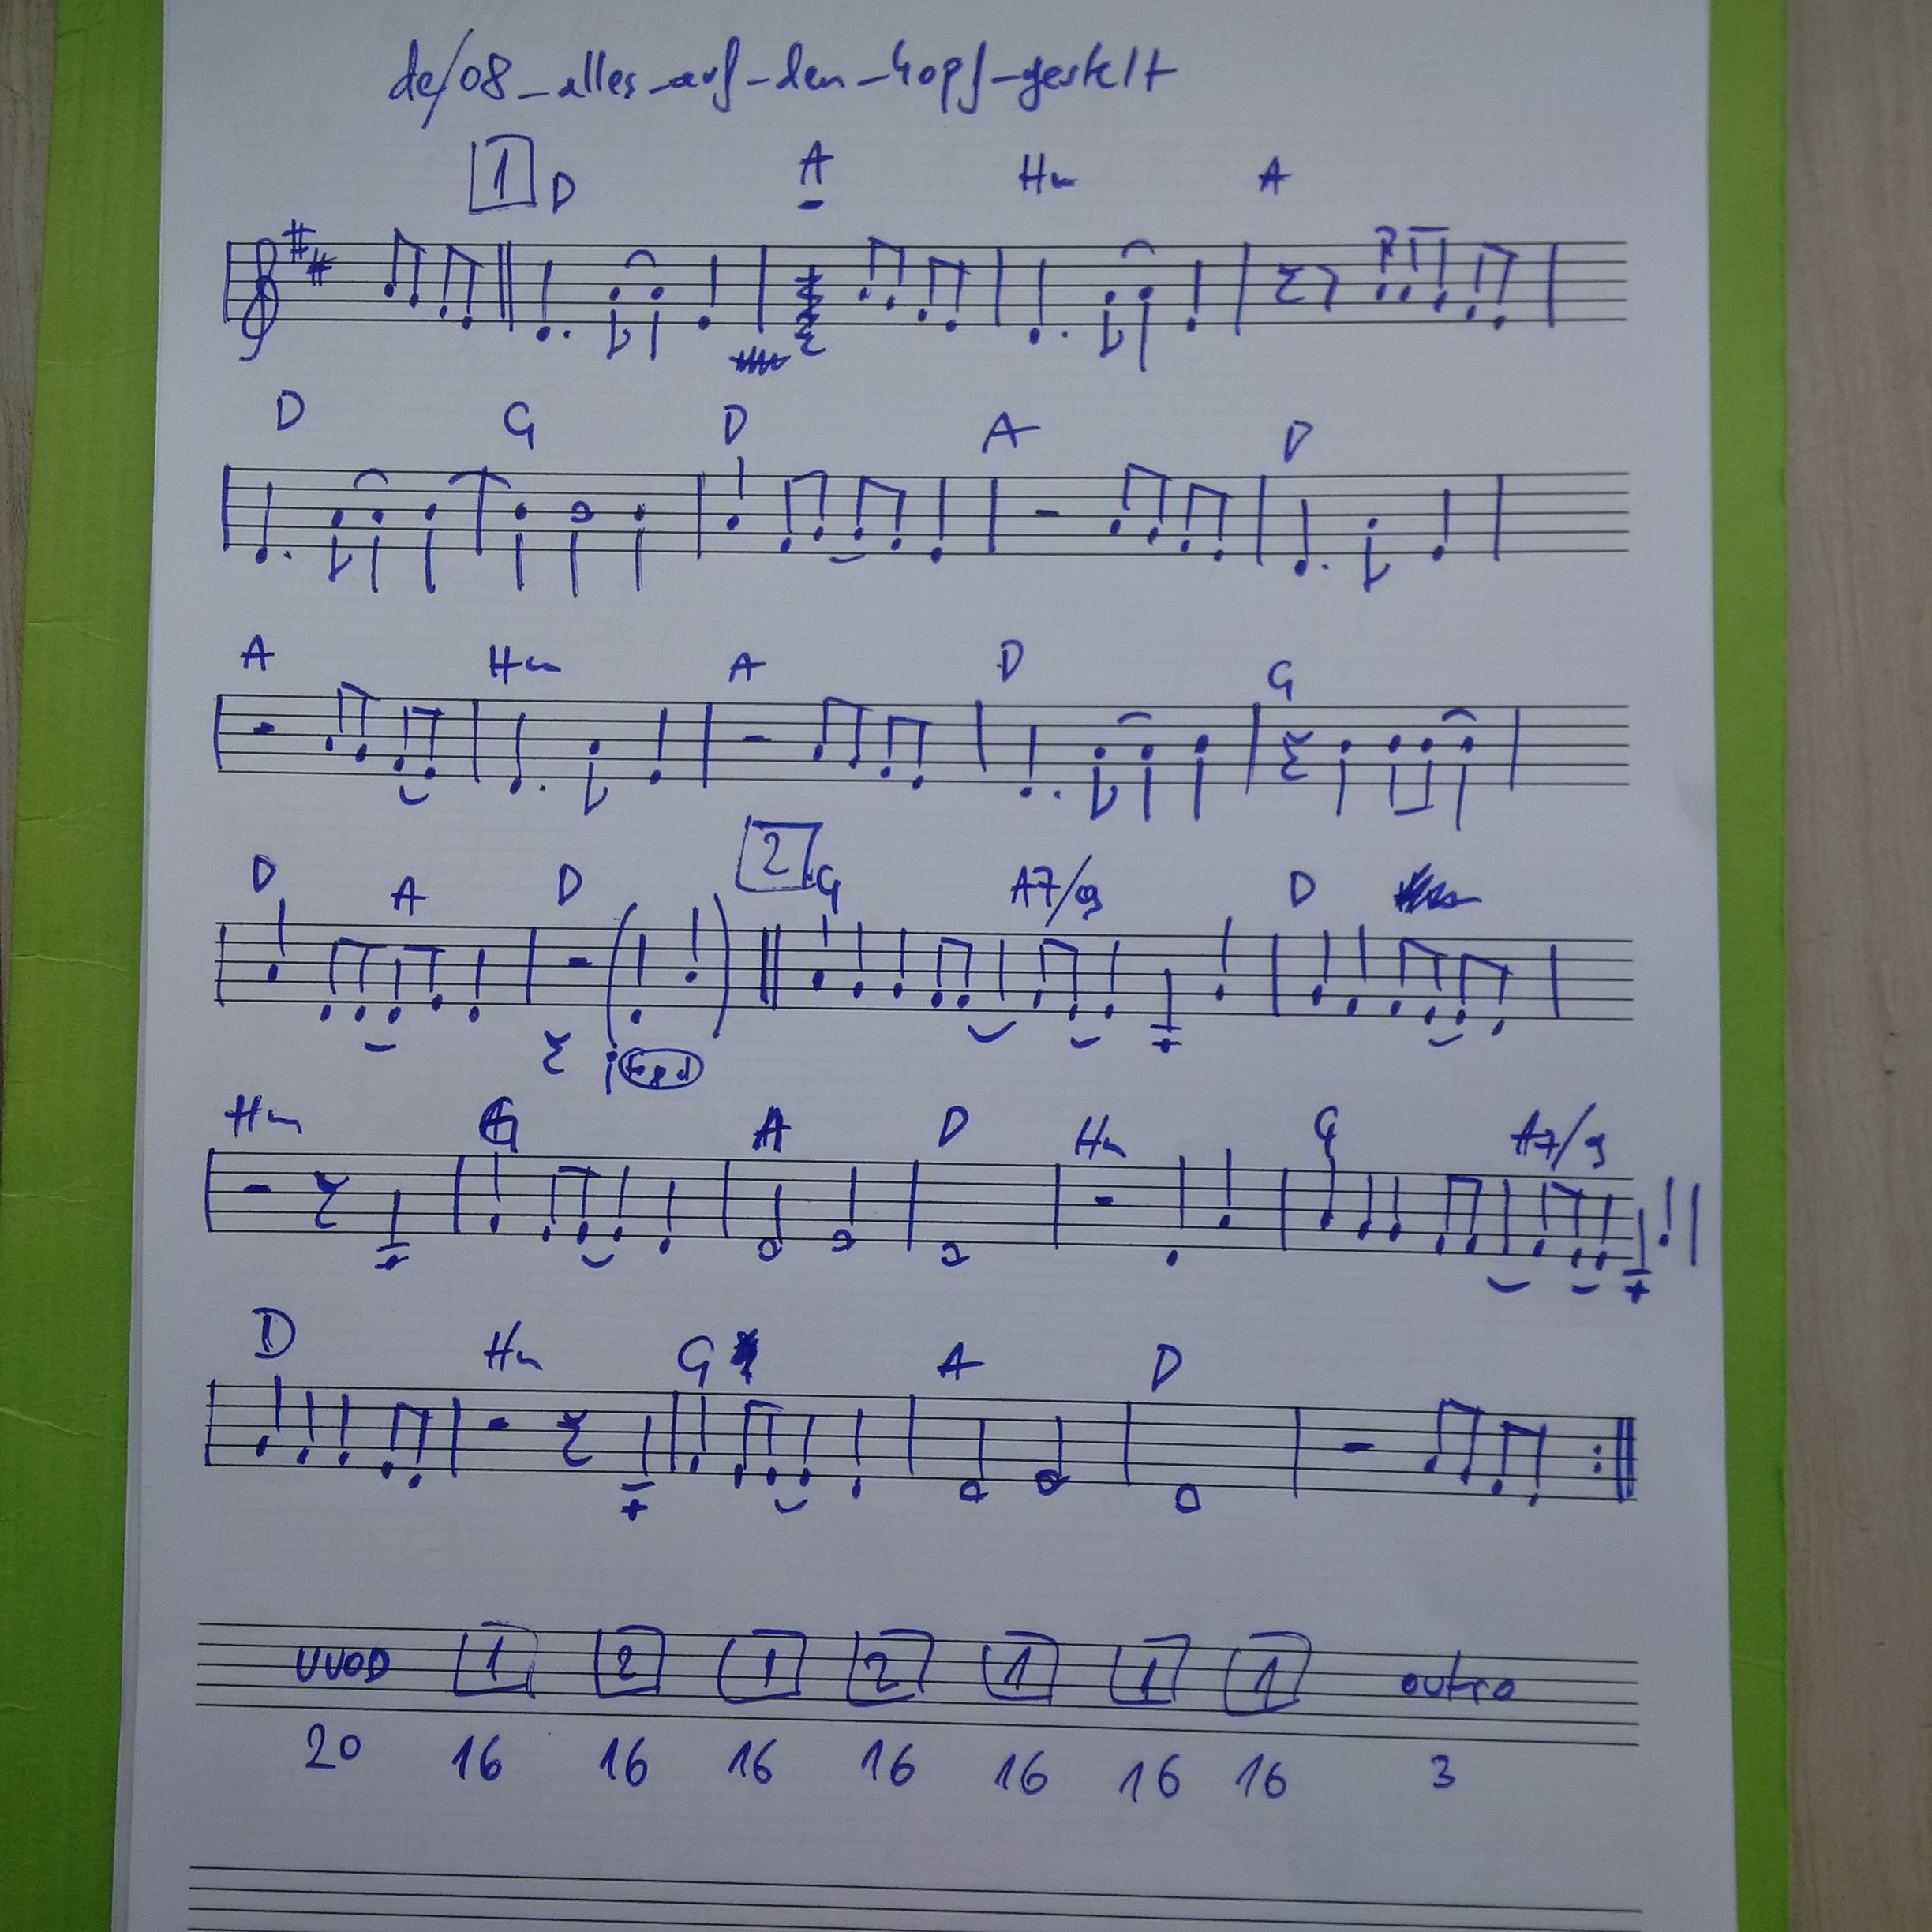 de/08_alles_auf_den_Kopf_gestelt
1 D A Hm A
D G D A D
A Hm A D G
D A D 2 G A7/9 D
Hm G A D Hm G A7/9
D Hm G A D
UVOD 1 2 1 2 1 1 1 outro
20 16 16 16 16 16 16 16 3